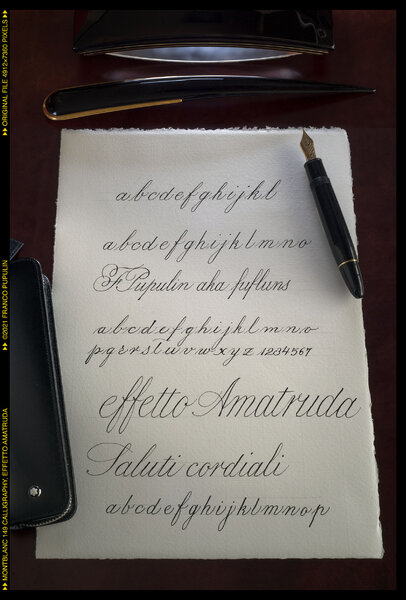 abcdefghijkl
abcdefghijklmno
FPupulin aka fufluns
abcdefghijklmno
pqerstuvwxyz 1234567
effetto Amatruda
Saluti cordiali
abcdefghijklmnop
ORIGINAL FILE 4912x7360 PIXELS
©2021 FRANCO PUPULIN
MONTBLANC 149 CALLIGRAPHY, EFFETTO AMATRUDA